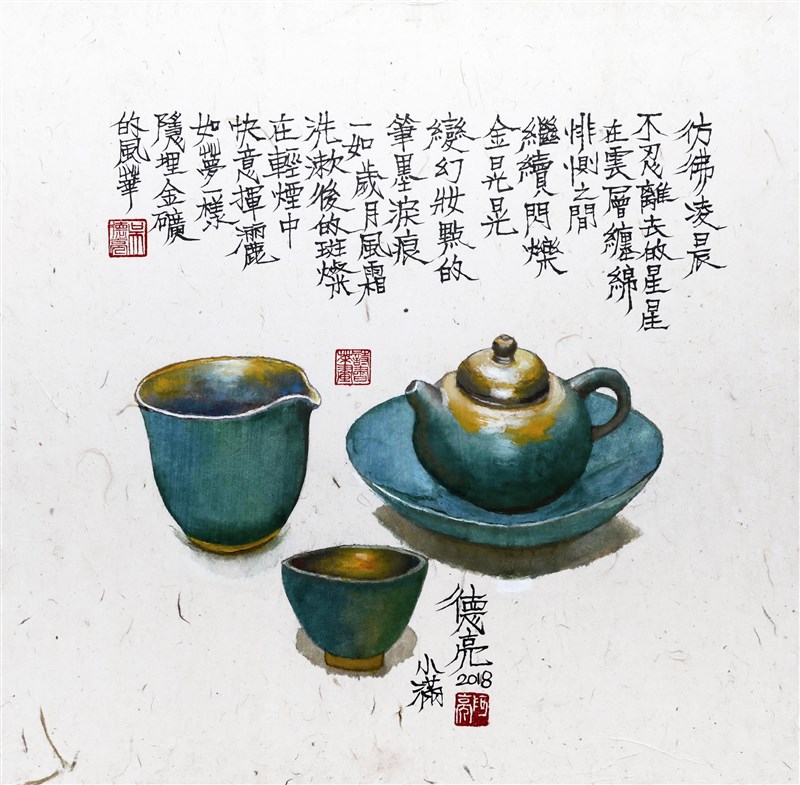 彷彿凌晨
不忍離去的星星
在雲層纏綿
悱惻之間
繼續閃爍
金
變幻妝點的
筆墨淚痕
一如歲月風霜
洗漱後的斑燦
在輕煙中
快意揮灑
如夢一樣
隱埋金礦
的風華
吳德亮
德亮
2018
小滿
阿亮